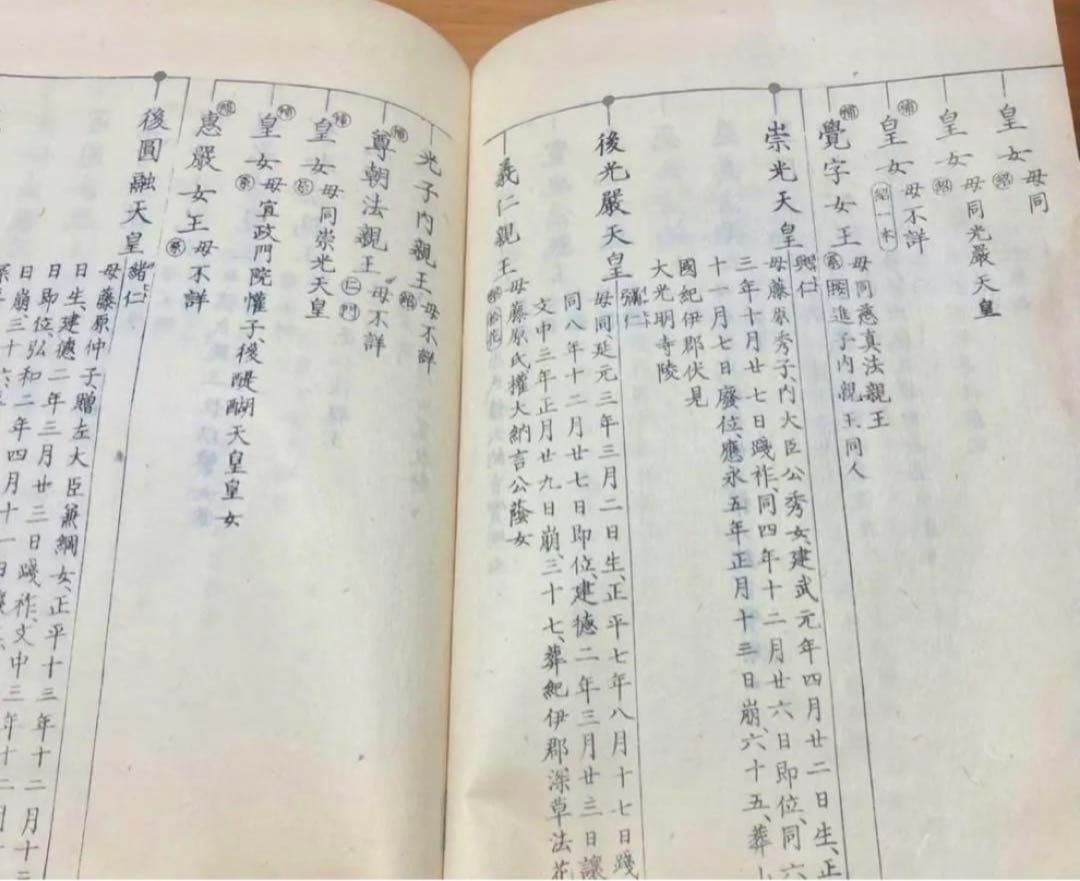 皇女 母同
皇女 母同光嚴天皇
補
皇女 母不詳 紹一本
補
覺字女王 母同慈真法親王
進子內親王同人
崇光天皇 興仁
母藤原秀子、內大臣公秀女、建武元年四月廿二日生、正
三年十月廿七日踐祚、同四年十二月廿六日即位、同六
十一月七日廢位、應永五年正月十三日崩、六十五、葬山
國紀伊郡伏見
大光明寺陵
後光嚴天皇 彌仁
母同延元三年三月二日生、正平七年八月十七日踐
同八年十二月廿七日即位、建德二年三月廿三日讓
文中三年正月廿九日崩、三十七、葬紀伊郡深草法花
義仁親王 母藤原氏權大納言公蔭女
光子內親王 母不詳
補
尊朝法親王 母不詳
補
皇女 母同崇光天皇
補
皇女 母宣政門院懽子、後醍醐天皇皇女
補
惠嚴女王 母不詳
後圓融天皇 緒仁
母藤原仲子、贈左大臣兼綱女、正平十三年十二月十二
日生、建德二年三月廿三日踐祚、文中三年十二月
日即位、弘和二年四月十一日
日崩、三十六